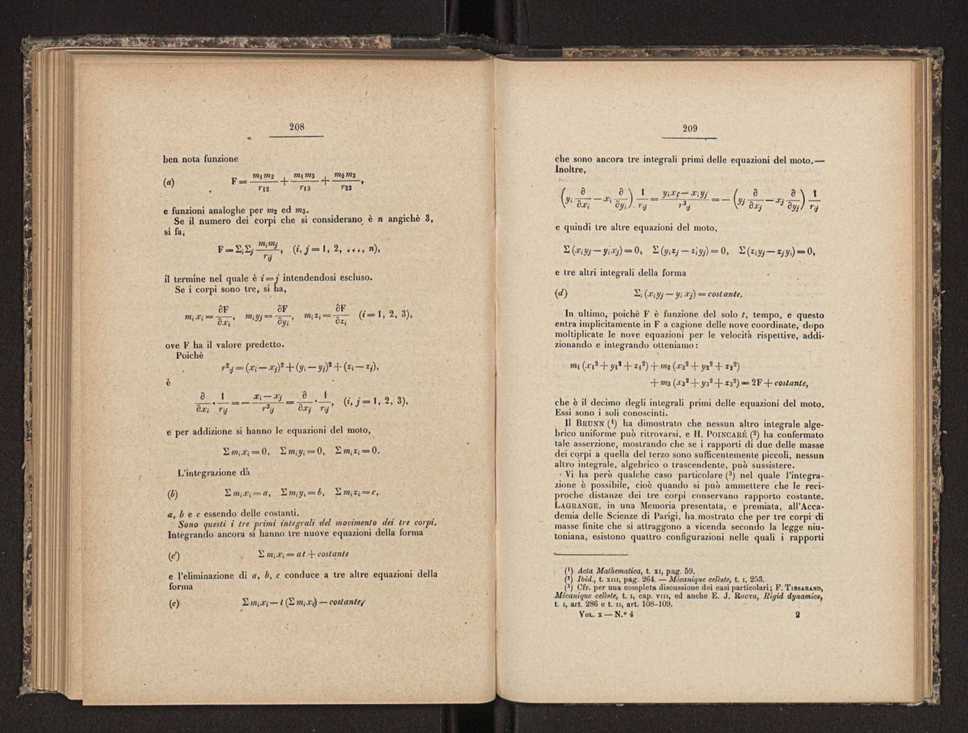 208
ben nota funzione
(a) F = m₁m₂/r₁₂ + m₁m₃/r₁₃ + m₂m₃/r₂₃,
e funzioni analoghe per m₂ ed m₃.
Se il numero dei corpi che si considerano è n angichè 3,
si fa,
F = Σᵢ Σⱼ mᵢmⱼ/rᵢⱼ, (i, j = 1, 2, ..., n),
il termine nel quale è i = j intendendosi escluso.
Se i corpi sono tre, si ha,
mᵢxᵢ = ∂F/∂xᵢ, mᵢyⱼ = ∂F/∂yᵢ, mᵢzᵢ = ∂F/∂zᵢ (i = 1, 2, 3),
ove F ha il valore predetto.
Poichè
r²ᵢⱼ = (xᵢ — xⱼ)² + (yᵢ — yⱼ)² + (zᵢ — zⱼ),
è
∂/∂xᵢ · 1/rᵢⱼ = — (xᵢ — xⱼ)/r²ᵢⱼ = ∂/∂xⱼ · 1/rᵢⱼ, (i, j = 1, 2, 3),
e per addizione si hanno le equazioni del moto,
Σ mᵢxᵢ = 0, Σ mᵢyᵢ = 0, Σ mᵢzᵢ = 0.
L'integrazione dà
(b) Σ mᵢxᵢ = a, Σ mᵢyᵢ = b, Σ mᵢzᵢ = c,
a, b e c essendo delle costanti.
Sono questi i tre primi integrali del movimento dei tre corpi.
Integrando ancora si hanno tre nuove equazioni della forma
(c') Σ mᵢxᵢ = at + costante
e l'eliminazione di a, b, c conduce a tre altre equazioni della
forma
(c) Σ mᵢxᵢ — t (Σ mᵢxᵢ) — costante,
209
che sono ancora tre integrali primi delle equazioni del moto. —
Inoltre,
(yᵢ ∂/∂xᵢ — xᵢ ∂/∂yᵢ) 1/rᵢⱼ = (yᵢxⱼ — xᵢyⱼ)/r³ᵢⱼ = — (yⱼ ∂/∂xⱼ — xⱼ ∂/∂yⱼ) 1/rᵢⱼ
e quindi tre altre equazioni del moto,
Σ (xᵢyⱼ — yᵢxⱼ) = 0, Σ (yᵢzⱼ — zᵢyⱼ) = 0, Σ (zᵢyⱼ — zⱼyᵢ) = 0,
e tre altri integrali della forma
(d) Σᵢ (xᵢyⱼ — yᵢ xⱼ) = costante.
In ultimo, poichè F è funzione del solo t, tempo, e questo
entra implicitamente in F a cagione delle nove coordinate, dopo
moltiplicate le nove equazioni per le velocità rispettive, addi-
zionando e integrando otteniamo:
m₁ (x₁² + y₁² + z₁²) + m₂ (x₂² + y₂² + z₂²)
+ m₃ (x₃² + y₃² + z₃²) = 2F + costante,
che è il decimo degli integrali primi delle equazioni del moto.
Essi sono i soli conoscinti.
Il BRUNN (¹) ha dimostrato che nessun altro integrale alge-
brico uniforme può ritrovarsi, e H. POINCARÉ (²) ha confermato
tale asserzione, mostrando che se i rapporti di due delle masse
dei corpi a quella del terzo sono sufficentemente piccoli, nessun
altro integrale, algebrico o trascendente, può sussistere.
Vi ha però qualche caso particolare (³) nel quale l'integra-
zione è possibile, cioè quando si può ammettere che le reci-
proche distanze dei tre corpi conservano rapporto costante.
LAGRANGE, in una Memoria presentata, e premiata, all'Acca-
demia delle Scienze di Parigi, ha mostrato che per tre corpi di
masse finite che si attraggono a vicenda secondo la legge niu-
toniana, esistono quattro configurazioni nelle quali i rapporti
(¹) Acta Mathematica, t. XI, pag. 59.
(²) Ibid., t. XIII, pag. 264. — Mécanique céleste, t. I, 253.
(³) Cfr. per una completa discussione dei casi particolari; F. TISSARAND,
Mécanique céleste, t. I, cap. VIII, ed anche E. J. ROUTH, Rigid dynamics,
t. I, art. 286 e t. II, art. 108-109.
VOL. X — N.º 4 2